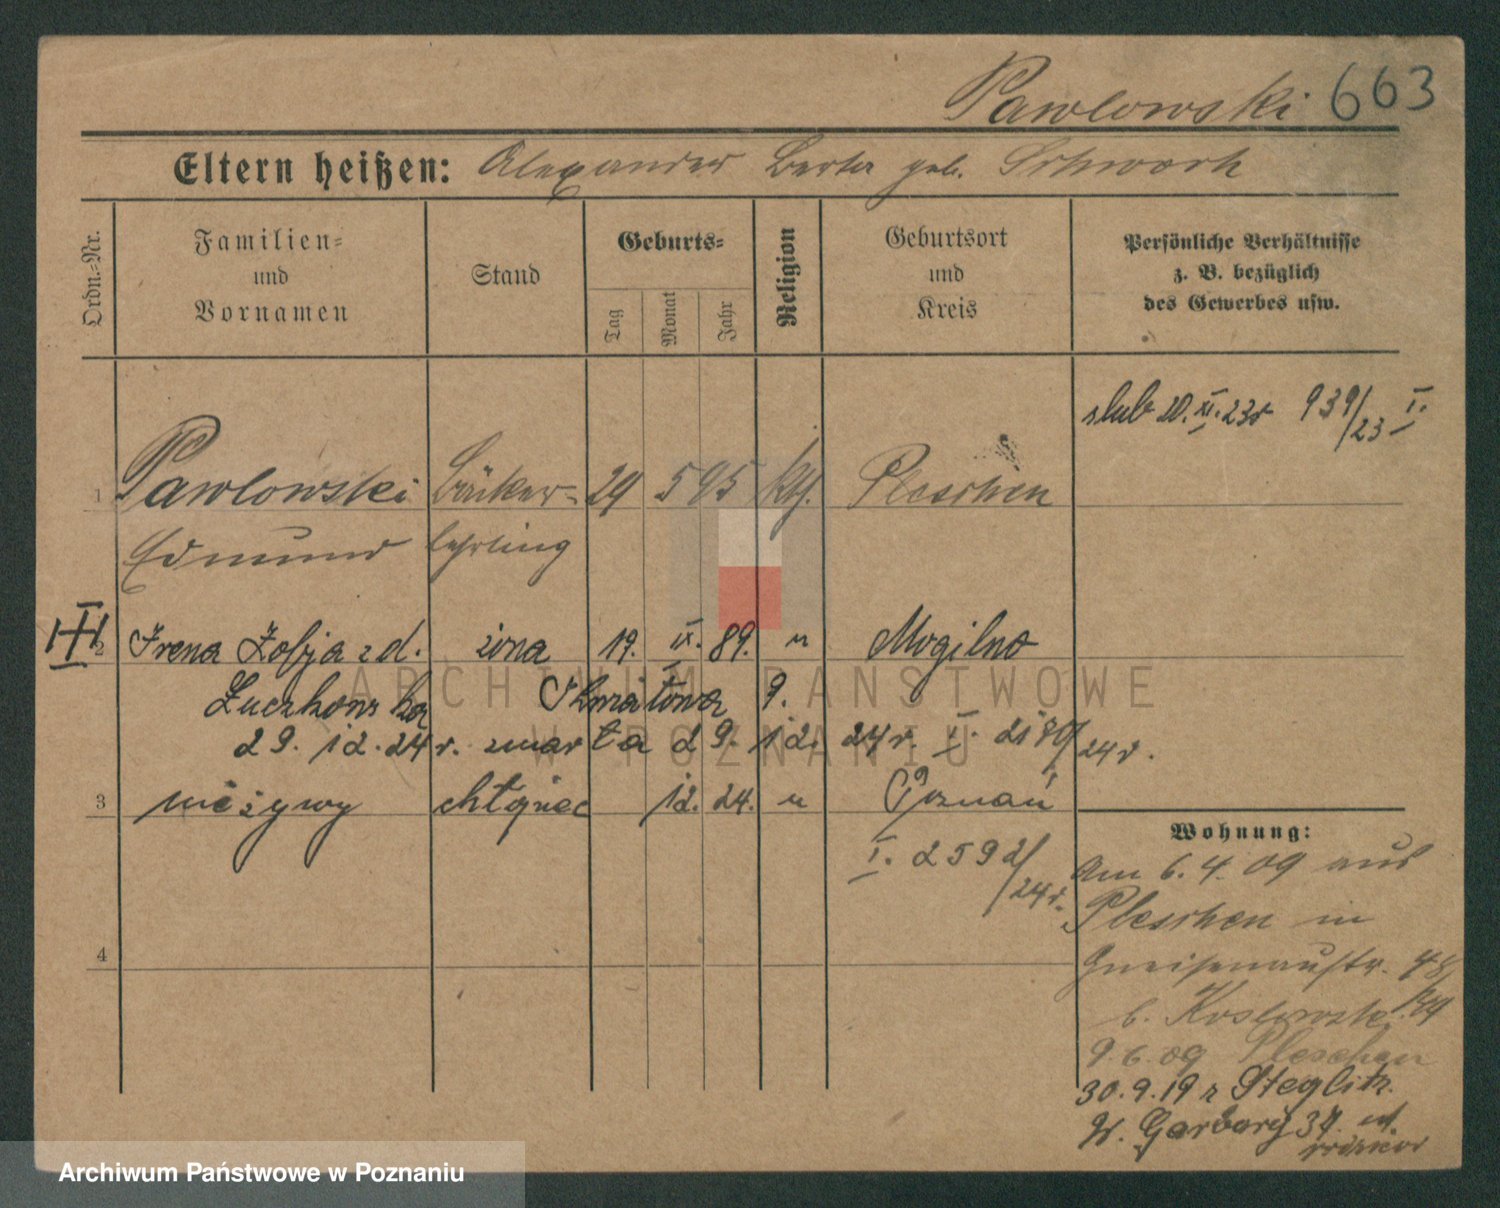 Pawlowski 663
Eltern heißen: Alexander Berta geb. Schwark
Ordn.-Nr.
Familien-
und
Vornamen
Stand
Geburts-
Tag
Monat
Jahr
Religion
Geburtsort
und
Kreis
Persönliche Verhältnisse
z. B. bezüglich
des Gewerbes usw.
ślub 20. XI. 23r 939/23 I.
1 Pawlowski Bäcker- 29 5 95 kth. Pleschen
Edmund lehrling
2 Irena Zofja z d. żona 19. IX. 89. " Mogilno
29. 12. 24 r. zmarła 29. 12. 24 r. II. 2180/24 r.
3 nieżywy chłopiec 12. 24. " Poznań
I. 2592/24 r.
Wohnung:
Am 6. 4. 09 aus
Pleschen in
Gneisenaustr. 48
b. Koslowski
9. 6. 09 Pleschen
4
30. 9. 19 z Steglitz.
W. Garbary 37.
ARCHIWUM PAŃSTWOWE
W POZNANIU
Archiwum Państwowe w Poznaniu